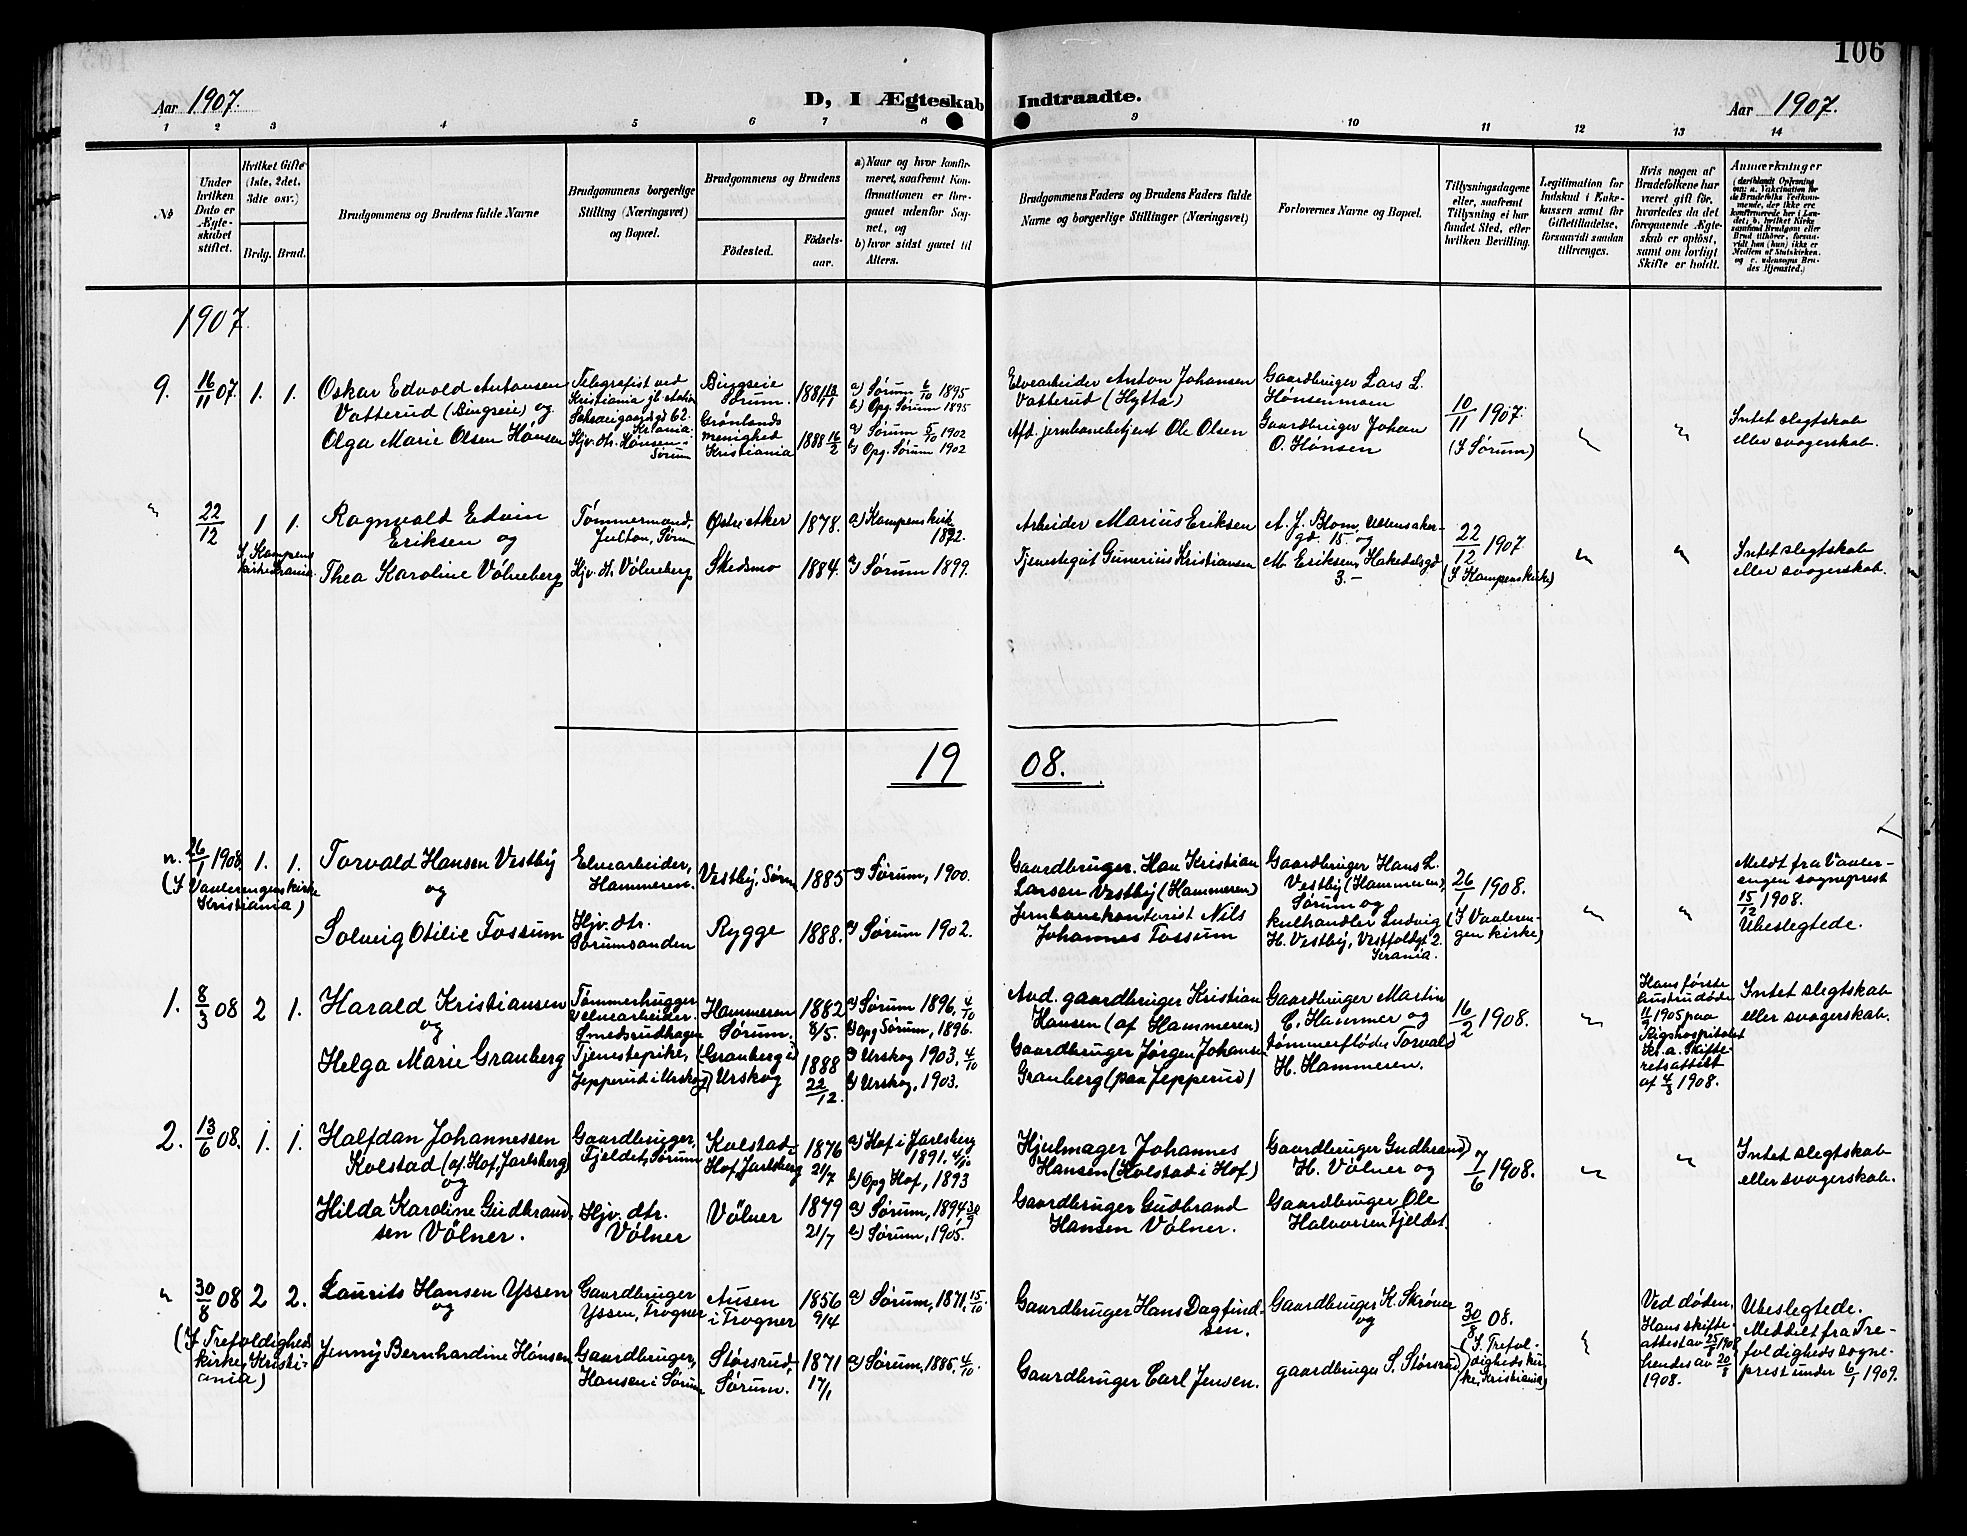 106
Aar 1907.
D, I Ægteskab Indtraadte.
Aar 1907.
1 2 3 4 5 6 7 8 9 10 11 12 13 14
№
Under hvilken Dato er Ægteskabet stiftet.
Hvilket Gifte (1ste, 2det, 3die osv.)
Brdg. Brud.
Brudgommens og Brudens fulde Navne
Brudgommens borgerlige Stilling (Næringsvei) og Bopæl.
Brudgommens og Brudens
Fødested.
Fødselsaar.
a) Naar og hvor konfirmeret, saafremt Konfirmationen er foregaaet udenfor Sognet, og
b) hvor sidst gaaet til Alters.
Brudgommens Faders og Brudens Faders fulde Navne og borgerlige Stillinger (Næringsvei)
Forlovernes Navne og Bopæl.
Tillysningsdagene eller, saafremt Tillysning ei har fundet Sted, efter hvilken Bevilling.
Legitimation for Indskud i Enkekassen samt for Giftetilladelse, forsaavidt saadan tiltrænges.
Hvis nogen af Brudefolkene har været gift før, hvorledes da det foregaaende Ægteskab er opløst, samt om lovligt Skifte er holdt.
Anmærkninger
(deriblandt Oplysning om: a. Vakcination for de Brudefolks Vedkommende, der ikke ere konfirmerede her i Landet; b. hvilket Kirkesamfund Brudgom eller Brud tilhører, forsaavidt han (hun) ikke er Medlem af Statskirken. og c. udensogns Brudes Hjemsted.)
1907
9. 16/11 07. 1. 1.
Oskar Edvold Antonsen
Vatterud (Bingseie) og
Olga Marie Olsen Hønsen
Telegrafist ved
Kristiania jb. station
62.
Krania.
Hjv. dtr. Hønsen i
Sørum
Bingseie
Sørum.
Grønlands
menighed
Kristiania
1881 13/11
1888 16/2
a) Sørum 6/10 1895
b) Opg. Sørum 1895
a) Sørum 5/10 1902
b) Opg. Sørum 1902
Elvearbeider Anton Johansen
Vatterud (Hytta)
Afd. jernbanebetjent Ole Olsen
Gaardbruger Lars L.
Hønsenmoen
Gaardbruger Johan
O. Hønsen
10/11 1907.
(I Sørum)
"
"
Intet slegtskab
eller svogerskab.
" 22/12 1 1.
I Kampens
kirke Krania.
Ragnvald Edvin
Eriksen og
Thea Karoline Vølneberg
Tømmermand,
Julton, Sørum
Hjv. dt. Vølneberg
Østre Aker
Skedsmo
1878.
1884.
a) Kampens kirk
1892.
a) Sørum 1899.
Arbeider Marius Eriksen
Tjenestegut Gunerius Kristiansen
A. J. Blom, Ullensakergd. 15 og
M. Eriksen, Hakedalsgd
3.—
22/12 1907
(I Kampens kirke)
"
"
Intet slegtskab
eller svogerskab.
19 08.
n. 26/1 1908 1. 1.
(I Vaalerengens kirke
Kristiania)
Torvald Hansen Vestby
og
Solveig Otilie Fossum
Elvearbeider,
Hammeren.
Hjv. dtr.
Sørumsanden
Vestby, Sørum
Rygge
1885
1888.
a) Sørum, 1900.
a) Sørum 1902.
Gaardbruger. Han Kristian
Larsen Vestby (Hammeren)
Jernbanekontorist Nils
Johannes Fossum
Gaardbruger Hans L.
Vestby (Hammeren)
Sørum og
kulhandler Ludvig
H. Vestby, Vestfoldgt 2.
Krania.
26/1 1908.
(I Vaalerengen kirke)
"
"
Meldt fra Vaalerengen sogneprest
15/12 1908.
Ubeslegtede.
1. 8/3 08 2 1.
Harald Kristiansen
og
Helga Marie Granberg
Tømmerhugger
& elvearbeider.
Smedsrudhagen
Tjenestepike,
Jepperud i Urskog
Hammeren
Sørum.
(Granberg i)
Urskog
1882
8/5.
1888
22/12
a) Sørum 1896, 4/10
b) Opg Sørum, 1896.
a) Urskog 1903, 4/10
b) Urskog, 1903.
And. gaardbruger Kristian
Hansen (af Hammeren)
Gaardbruger Jørgen Johansen
Granberg (paa Jepperud)
Gaardbruger Martin
C. Hammer og
tømmerfløder Torvald
H. Hammeren.
16/2 1908.
"
Hans første
hustru døde
11/9 1905 paa
Rigshospitalet
Kr.a. Skifteretsattest
af 4/3 1908.
Intet slegtskab
eller svogerskab.
2. 13/6 08. 1. 1.
Halfdan Johannessen
Kolstad (af Hof, Jarlsberg)
og
Hilda Karoline Gudbrandsen Vølner.
Gaardbruger,
Fjeldet, Sørum
Hjv. dtr.
Vølner
Kolstad
Hof, Jarlsberg
Vølner
1876
21/7
1879
21/7
a) Hof i Jarlsberg
1891. 4/10
b) Opg Hof, 1893
a) Sørum, 1894 30/9
b) Sørum, 1905.
Hjulmager Johannes
Hansen (Kolstad i Hof)
Gaardbruger Gudbrand
Hansen Vølner.
Gaardbruger Gudbrand
H. Vølner og
Gaardbruger Ole
Halvorsen Fjeldet.
7/6 1908.
"
"
Intet slegtskab
eller svogerskab.
" 30/8 08 2 2.
(I Trefoldigheds
kirke, Kristiania)
Laurits Hansen Yssen
og
Jenny Bernhardine Hønsen
Gaardbruger
Yssen, Frogner
Gaardbruger,
Hønsen i Sørum
Ausen
i Frogner
Størsrud,
Sørum.
1856
9/4
1871
17/1
a) Sørum, 1871, 15/10.
a) Sørum, 1885 4/10.
Gaardbruger Hans Dagfindsen.
Gaardbruger Carl Jensen.
Gaardbruger K. Skrøver
og
gaardbruger S. Størsrud
30/8 08.
(I Trefoldigheds kirke, Kristiania)
"
Ved døden,
Hans skifteattest av 25/8 1908
hendes av 20/8
1908.
Ubeslegtede.
Meddelt fra Trefoldigheds sogneprest under 6/1 1909.